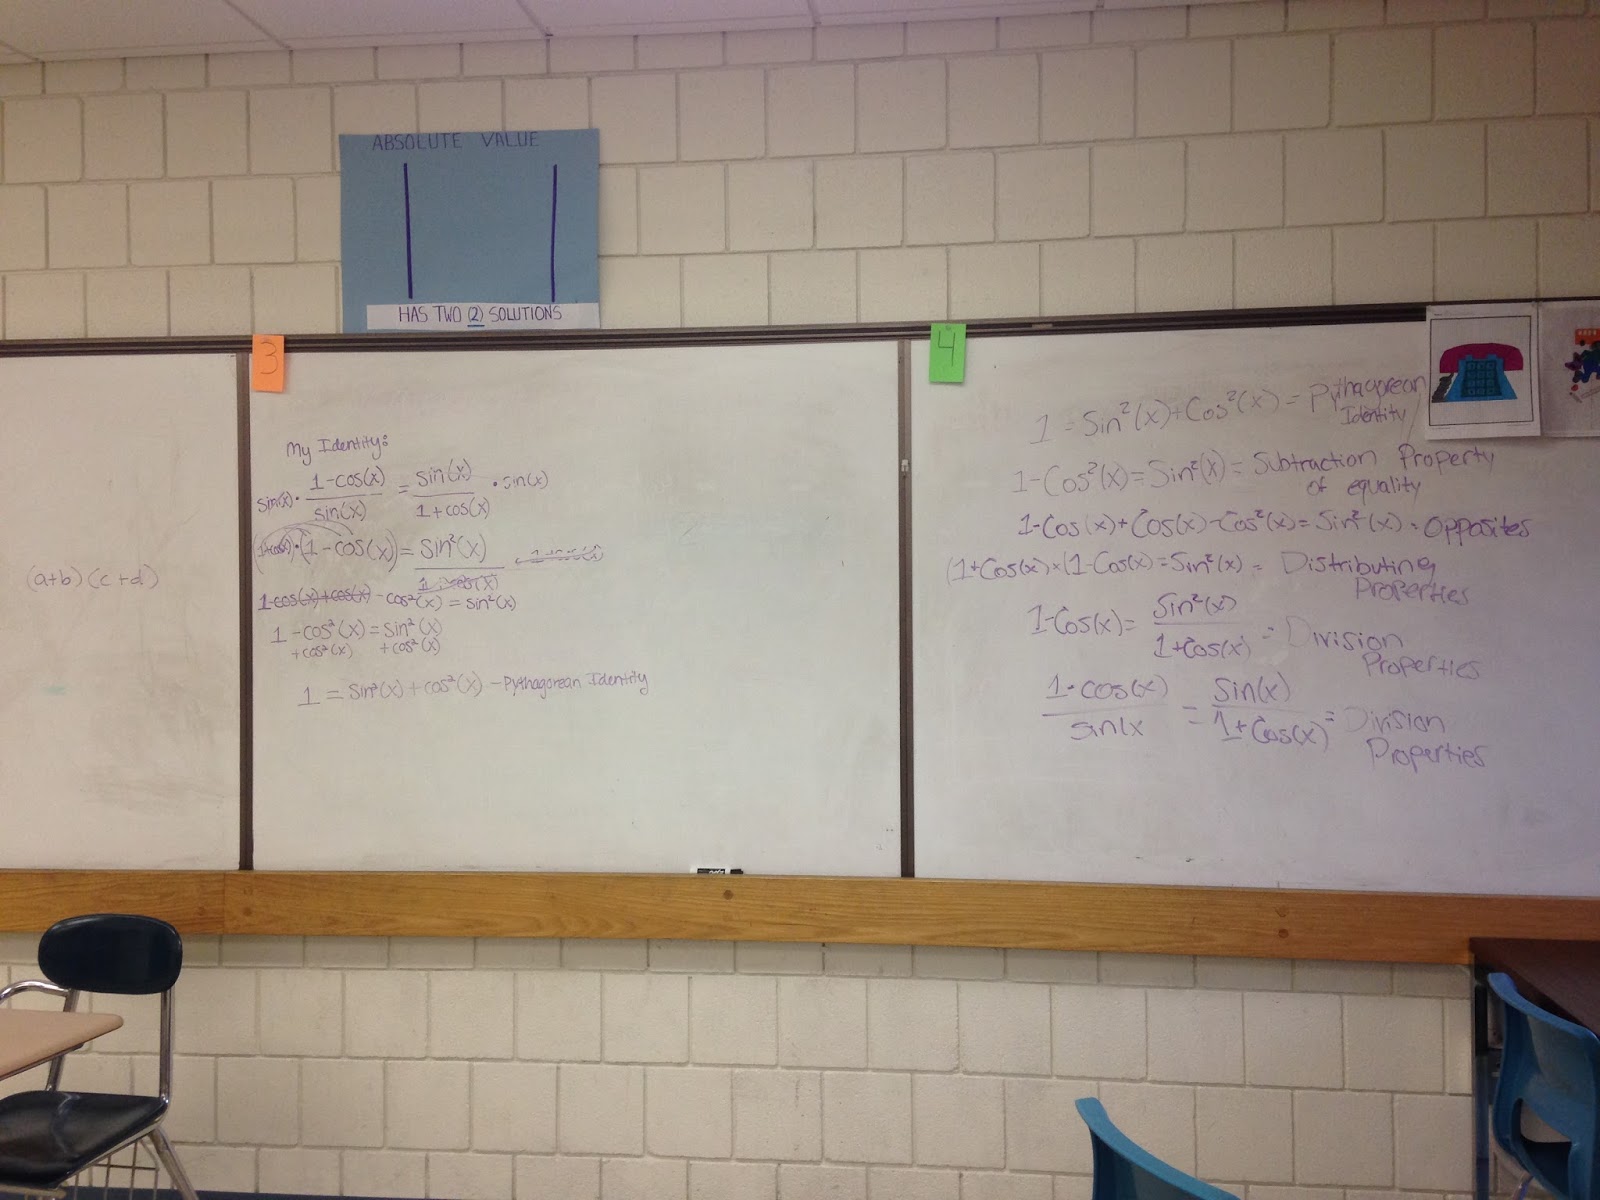 ABSOLUTE VALUE
HAS TWO (2) SOLUTIONS
(a+b)(c+d)
3
My Identity:
sin(x)· (1-cos(x))/sin(x) = sin(x)/(1+cos(x)) ·sin(x)
(1+cos(x))·(1-cos(x)) = sin²(x)/(1+cos(x))
1-cos(x)+cos(x)-cos²(x) = sin²(x)
1-cos²(x)=sin²(x)
+cos²(x) +cos²(x)
1 = sin²(x)+cos²(x) - Pythagorean Identity
4
1 = Sin²(x)+Cos²(x) = Pythagorean
Identity
1-Cos²(x)=Sin²(x)=Subtraction Property
of equality
1-Cos(x)+Cos(x)-Cos²(x)=Sin²(x)=Opposites
(1+Cos(x)·(1-Cos(x)=Sin²(x)= Distributing
Properties
1-Cos(x)= Sin²(x)/1+Cos(x) = Division
Properties
1·cos(x)/sin(x = Sin(x)/1+Cos(x) = Division
Properties